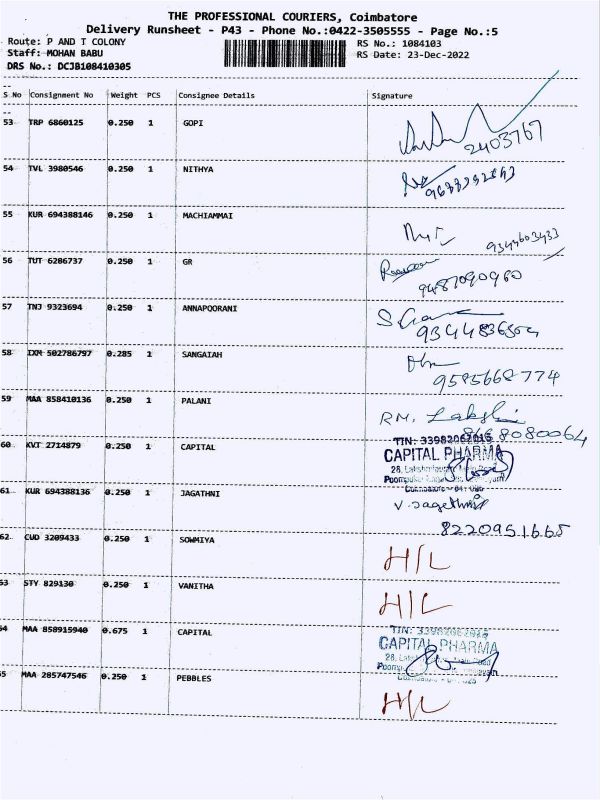 THE PROFESSIONAL COURIERS, Coimbatore
Delivery Runsheet - P43 - Phone No.:0422-3505555 - Page No.:5
Route: P AND T COLONY RS No.: 1084103
Staff: MOHAN BABU RS Date: 23-Dec-2022
DRS No.: DCJB108410305
S No Consignment No Weight PCS Consignee Details Signature
53 TRP 6860125 0.250 1 GOPI
2403767
54 TVL 3980546 0.250 1 NITHYA
55 KUR 694388146 0.250 1 MACHIAMMAI
9344603433
56 TUT 6286737 0.250 1 GR
9487090960
57 TNJ 9323694 0.250 1 ANNAPOORANI
9344836504
58 IXM 502786797 0.285 1 SANGAIAH
9585668774
59 MAA 858410136 0.250 1 PALANI
RM. Lakshmi
8668080064
60 KVT 2714879 0.250 1 CAPITAL
TIN: 33982062015
CAPITAL PHARMA
61 KUR 694388136 0.250 1 JAGATHNI
V. Jagethni
8220951665
62 CUD 3209433 0.250 1 SOWMIYA H/L
53 STY 829130 0.250 1 VANITHA H/L
54 MAA 858915940 0.675 1 CAPITAL
TIN: 33982062015
CAPITAL PHARMA
55 MAA 285747546 0.250 1 PEBBLES H/L